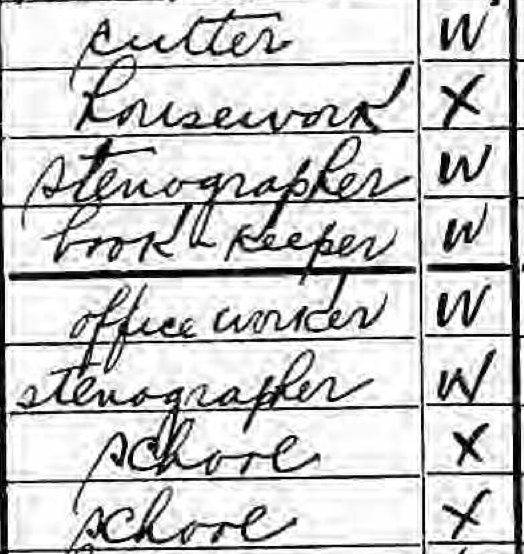 cutter W
housework X
stenographer W
book-keeper W
office worker W
stenographer W
school X
school X